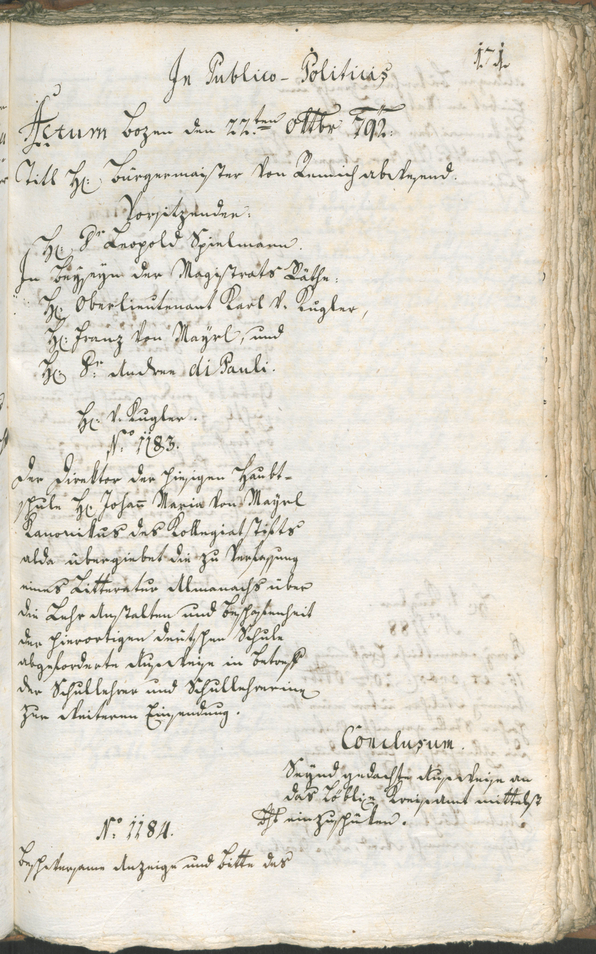 171.
In Publico-Politicis
Actum Bozen den 22.ten Octbr 792.
Titl H: Bürgermaister von Remich abwesend.
Vorsitzender:
H: Dr Leopold Spielmann.
In Beyseyn der Magistrats Räthe:
H: Oberlieutenant Karl v. Kugler,
H: Franz von Mayrl, und
H: Dr Andree di Pauli.
H: v. Kugler.
No 1183.
Der Direktor der hiesigen Haubt-
schule H: Johañ Maria von Mayrl
Kanonikus des Kollegiatstifts
alda übergiebet die zu Verfassung
eines Litteratur Almanachs über
die Lehr Anstalten und Beschafenheit
der hierortigen deutschen Schule
abgeforderte Ausweise in Betref
der Schullehrer und Schullehrerine
zur weiteren Einsendung.
Conclusum.
Seynd gedachte Ausweise an
das Löbliche Kreisamt mittelst
einzuschüken.
No 1184.
Beschwersame Anzeige und Bitte des